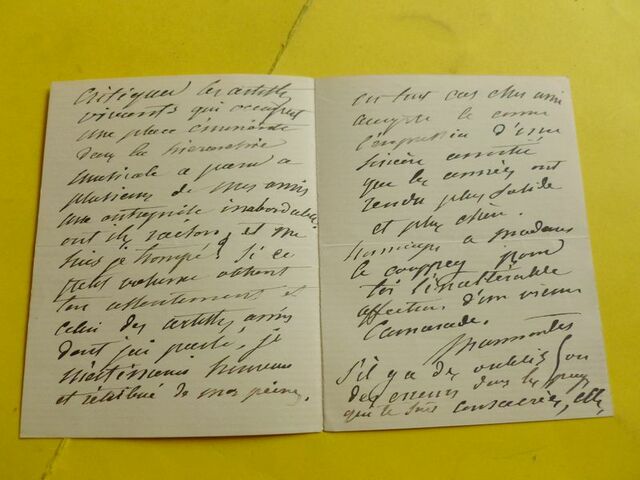 Critiquer les artistes
vivants qui occupent
une place éminente
dans la hiérarchie
musicale a paru a
plusieurs de mes amis
une entreprise inabordable.
ont ils raison, et me
suis je trompé? Si ce
petit volume obtient
ton assentiment et
celui des artistes amis
dont j'ai parlé, je
m'estimerais heureux
et rétribué de mes peines.
en tout cas cher ami
accepte le comme
l'expression d'une
sincère amitié
que les années ont
rendu plus solide
et plus chère.
hommages a madame
le couppey pour
toi l'inaltérable
affection d'un vieux
Camarade.
Marmontel
S'il y a des oublis ou
des erreurs dans les pages
que te sont consacrées,